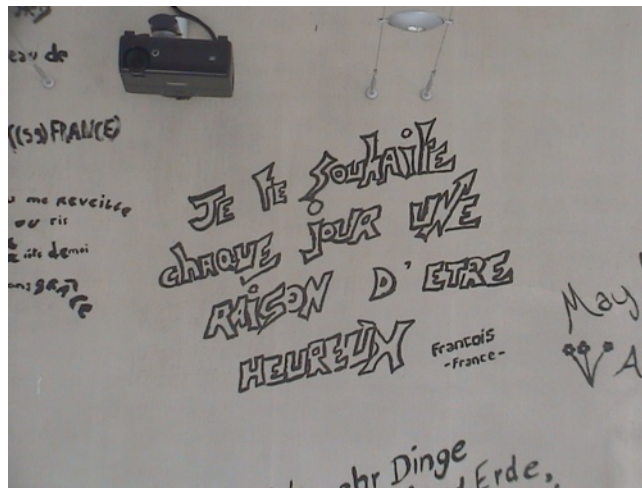 eau de
((59) FRANCE)
me REVEILLE
ou ris
demoi
JE TE SOUHAITE
CHAQUE JOUR UNE
RAISON D'ETRE
HEUREUX
Francois
-France-
May
A
Dinge
Erde,